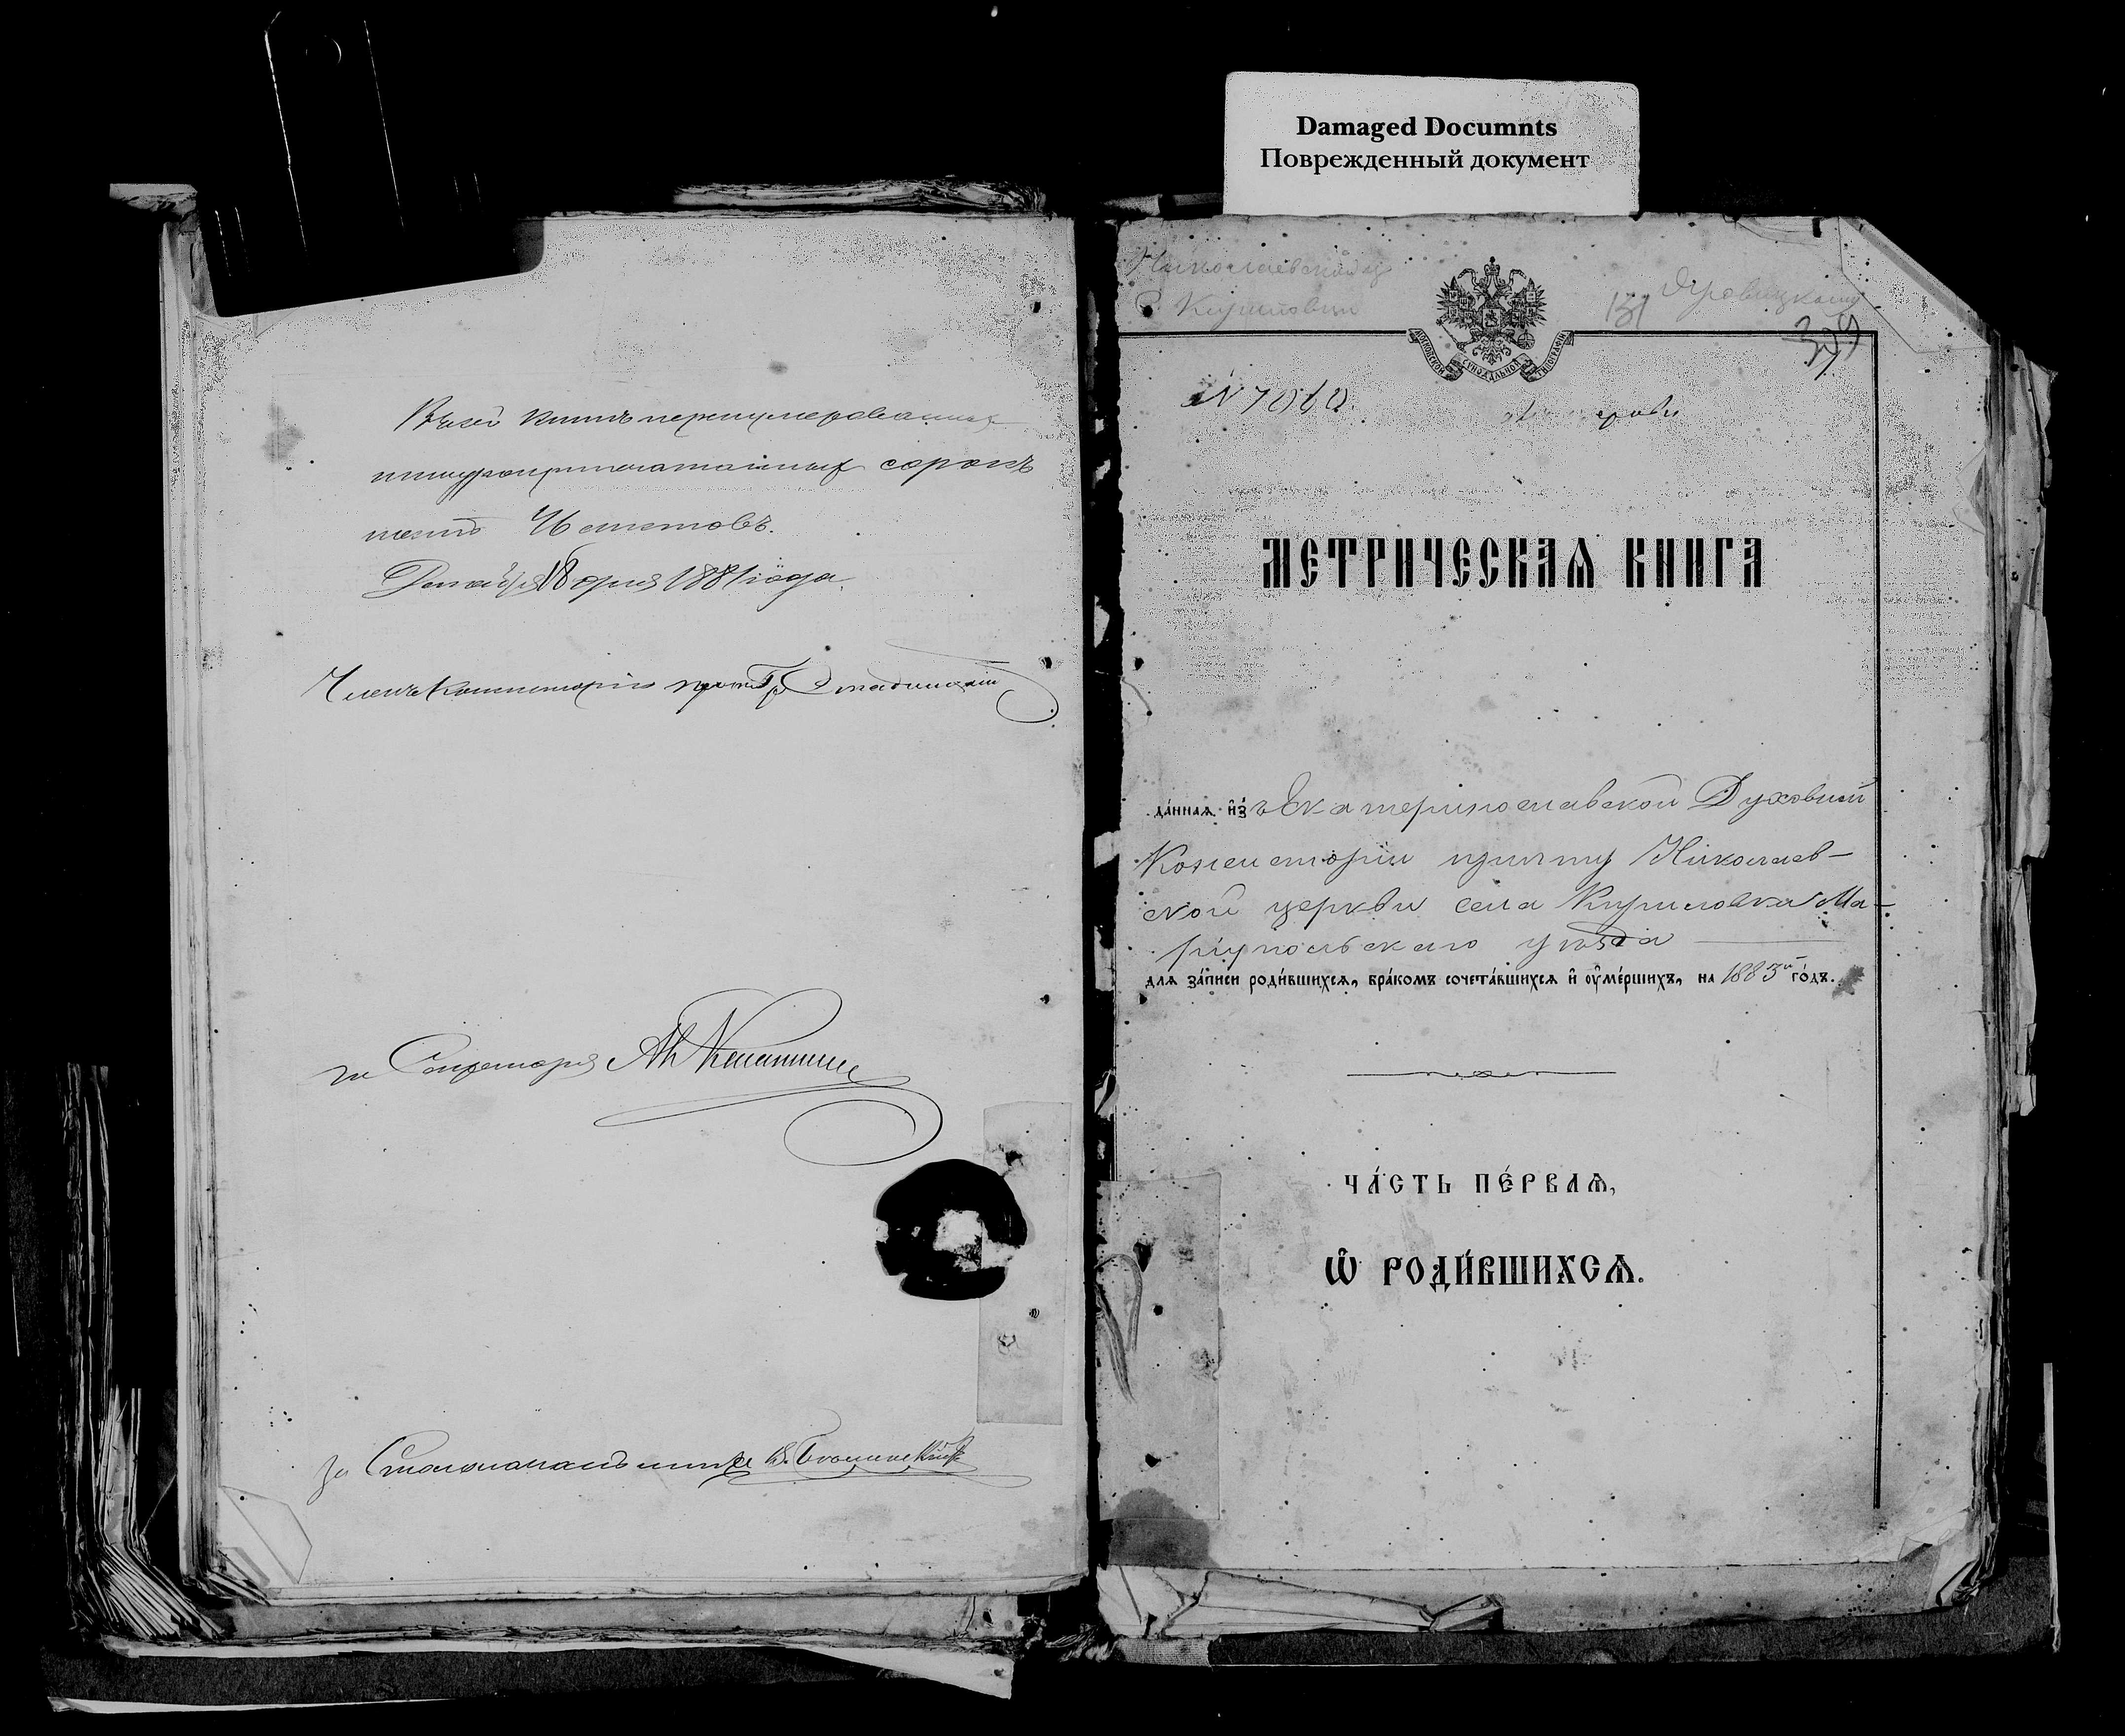 Damaged Documnts
Поврежденный документ
Въ сей книгѣ перенумерованныхъ
и шнуроприпечатанныхъ сорокъ
шесть Листовъ.
Декабря 18 дня 1881 года.
Членъ Консисторіи
за Секретаря
за Столоначальника
Николаевской ц.
с. Кириловки
131
МОСКОВСКОЙ СѴНОДАЛЬНОЙ ТИПОГРАФІИ
МЕТРИЧЕСКАѦ КНИГА
да́ннаѧ и҆з̾ Екатеринославской Духовной
Консисторіи причту Николаев-
ской церкви села Кириловка Ма-
ріупольскаго уѣзда
длѧ за́писи роди́вшихсѧ, бра́комъ сочета́вшихсѧ и҆ ᲂу҆ме́ршихъ, на 1883й го́дъ.
ЧА́СТЬ ПЕ́РВАѦ,
Ѡ҆ РОДИ́ВШИХСѦ.